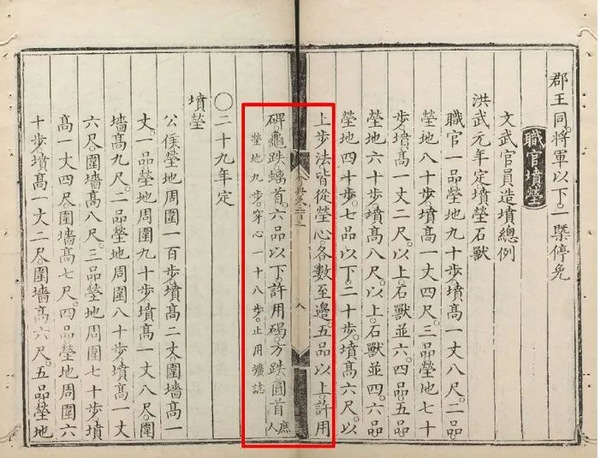 郡王同。將軍以下。一槩停免
職官墳塋
文武官員造墳總例
洪武元年定墳塋石獸
職官一品塋地九十步。墳高一丈八尺。二品。
塋地八十步。墳高一丈四尺。三品塋地七十
步。墳高一丈二尺。以上。石獸並六。四品五品
塋地六十步。墳高八尺。以上。石獸並四。六品
塋地四十步。七品以下。二十步。墳高六尺。以
上步法皆從塋心各數至邊。五品以上。許用
八
碑。龜趺螭首。六品以下。許用碣。方趺圓首。庶人
塋地九步。穿心一十八步。止用壙誌
○二十九年定
墳塋
公侯塋地周圍一百步。墳高二丈。圍墻高一
丈。一品塋地周圍九十步。墳高一丈八尺。圍
墻高九尺。二品塋地周圍八十步。墳高一丈
六尺。圍墻高八尺。三品塋地周圍七十步。墳
高一丈四尺。圍墻高七尺。四品塋地周圍六
十步。墳高一丈二尺。圍墻高六尺。五品塋地